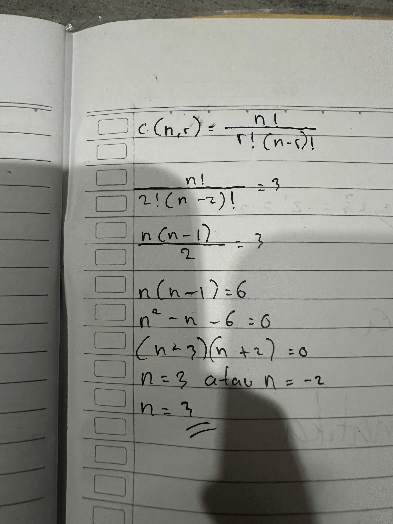 C(n,r) = n! / r!(n-r)!
n! / 2!(n-2)! = 3
n(n-1) / 2 = 3
n(n-1)=6
n² - n - 6 = 0
(n-3)(n+2) = 0
n = 3 atau n = -2
n = 3